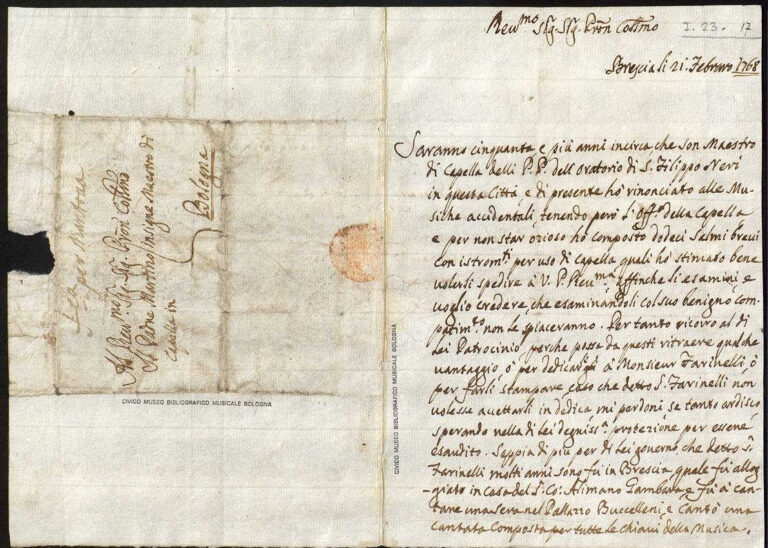 Rev.mo Sig.r Sig.r Pron Collmo
I. 23. 17
Brescia li 21. Febraro 1768
Saranno cinquanta e più anni incirca che son Maestro
di Capella delli P.P. dell'Oratorio di S. Filippo Neri
in questa Città, e di presente hò rinonciato alle Mu-
siche accidentali, tenendo però l'Off.o della Capella
e per non star ozioso hò composto dodeci Salmi brevi
con istrom.ti per uso di Capella quali hò stimato bene
volerli spedire à V. P. Rev.ma affinche li esamini, e
voglio credere, che esaminandoli col suo benigno com-
patim.to non le spiaceranno. Per tanto ricorro al di
Lei Patrocinio, perche possa da questi ritraere qualche
vantaggio, ò per dedicarli à Monsieur Farinelli, ò
per farli stampare caso che detto S.r Farinelli non
volesse accettarli in dedica, mi perdoni, se tanto ardisco
sperando nella di Lei degniss.a protezione per essere
esaudito. Seppia di più per di Lei governo che detto S.r
Farinelli molti anni sono fù in Brescia quale fù allog-
giato in casa del S.r Co: Alimano Gambara e fù à can-
tare una sera nel Pallazzo Buccelleni, e Cantò una
cantata Composta per tutte le chiavi della Musica.
per Mantova
Al Rev.mo Sig.r Sig.r Pron Collmo
Il Padre Martino insigne Maestro di
Capella in
Bologna
CIVICO MUSEO BIBLIOGRAFICO MUSICALE BOLOGNA
CIVICO MUSEO BIBLIOGRAFICO MUSICALE BOLOGNA